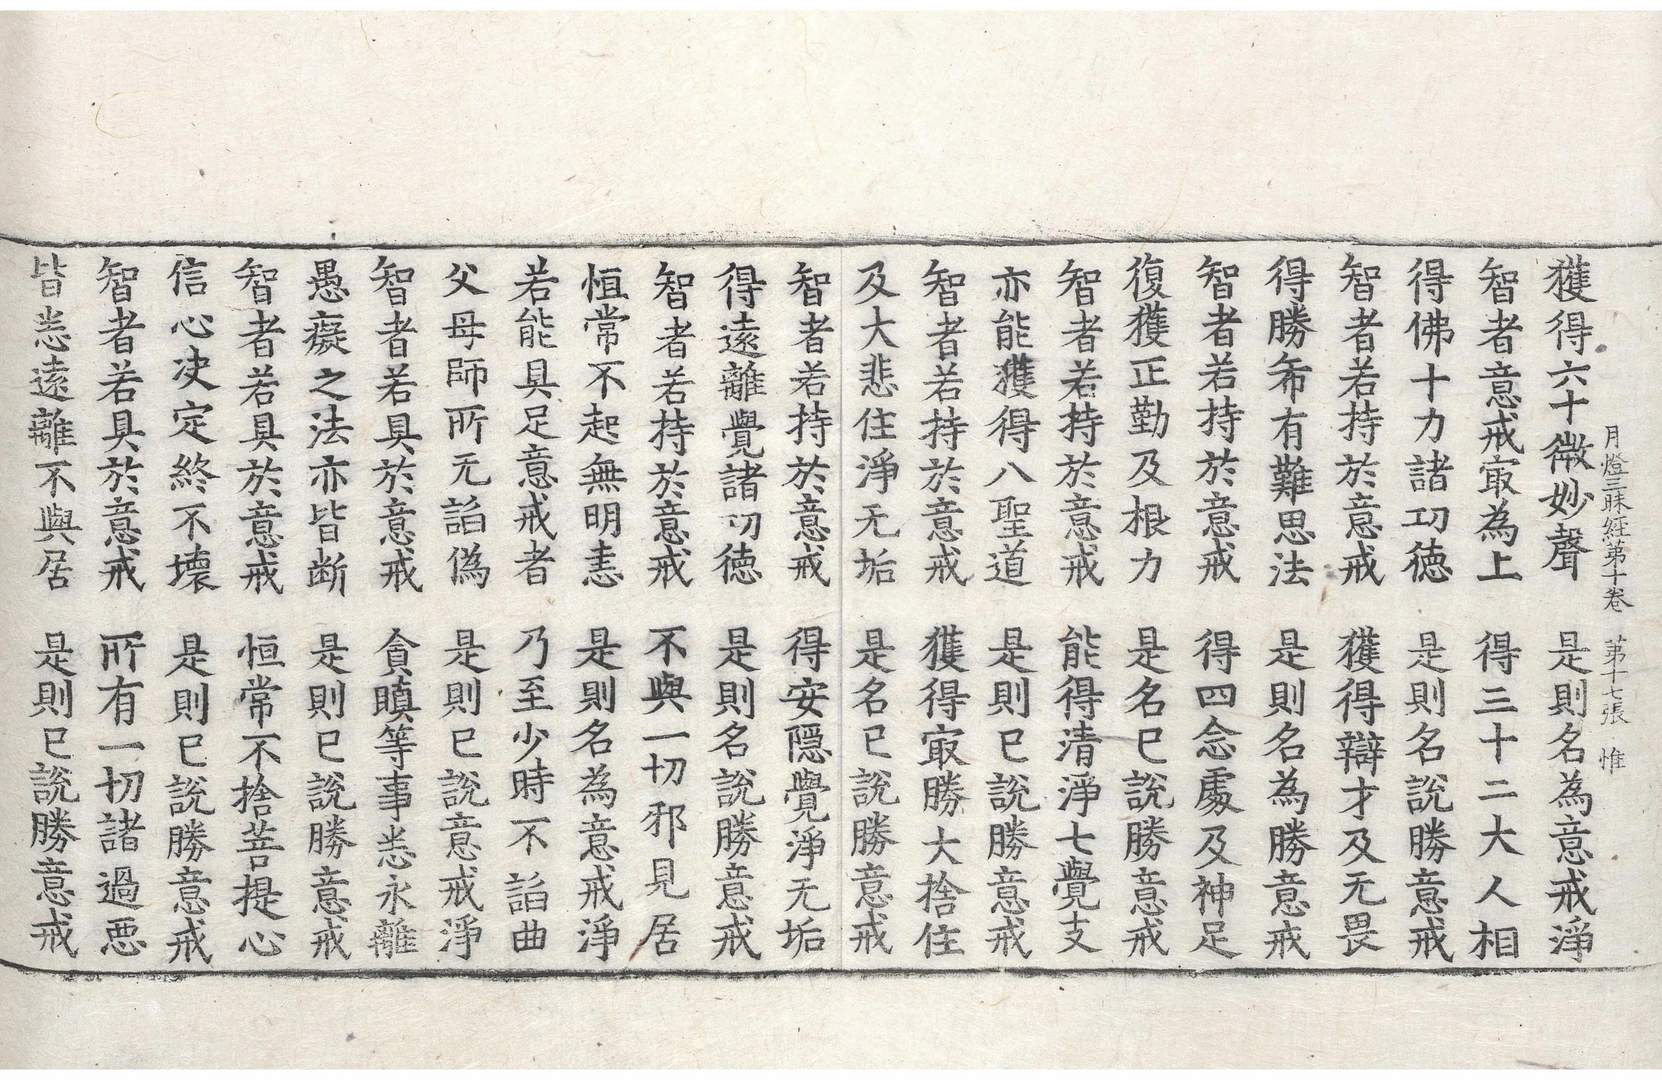 月燈三昧經第十卷　第十七張　惟
獲得六十微妙聲　是則名為意戒淨
智者意戒㝡為上　得三十二大人相
得佛十力諸㓛德　是則名說勝意戒
智者若持於意戒　獲得辯才及无畏
得勝希有難思法　是則名為勝意戒
智者若持於意戒　得四念處及神足
復獲正勤及根力　是名已說勝意戒
智者若持於意戒　能得清淨七覺支
亦能獲得八聖道　是則已說勝意戒
智者若持於意戒　獲得㝡勝大捨住
及大悲住淨无垢　是名已說勝意戒
智者若持於意戒　得安隱覺淨无垢
得遠離覺諸㓛德　是則名說勝意戒
智者若持於意戒　不與一切邪見居
恒常不起無明恚　是則名為意戒淨
若能具足意戒者　乃至少時不諂曲
父母師所无諂偽　是則已說意戒淨
智者若具於意戒　貪瞋等事悉永離
愚癡之法亦皆断　是則已說勝意戒
智者若具於意戒　恒常不捨菩提心
信心決定終不壞　是則已說勝意戒
智者若具於意戒　所有一切諸過惡
皆悉遠離不與居　是則已說勝意戒